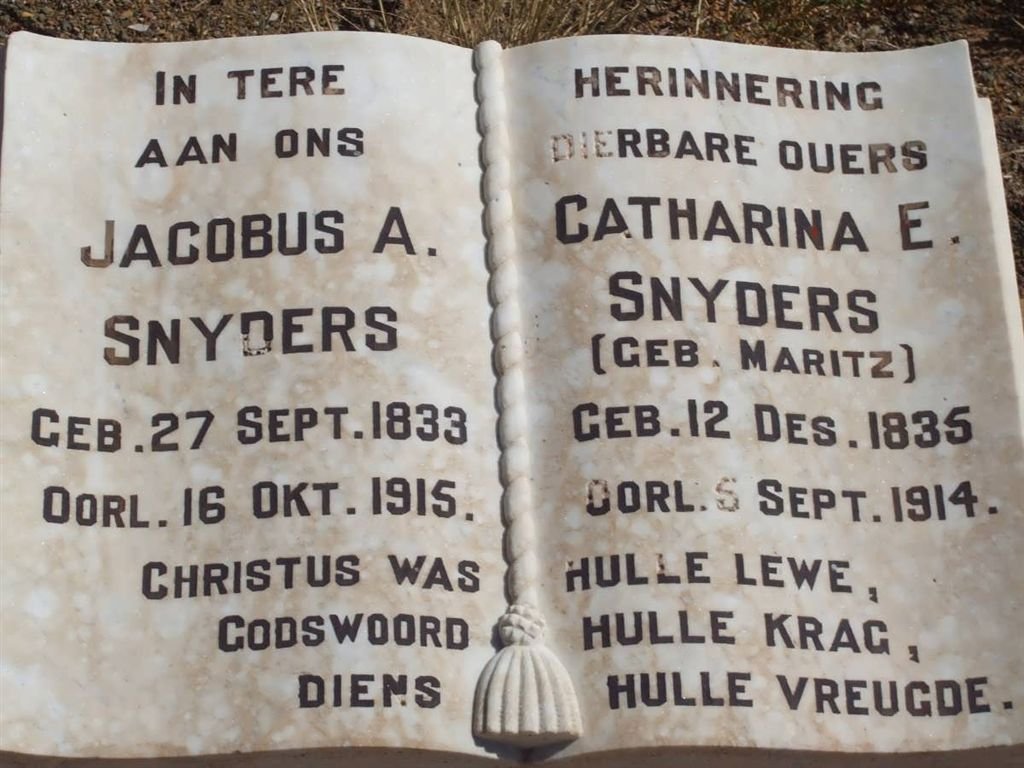 IN TERE HERINNERING
AAN ONS DIERBARE OUERS
JACOBUS A.
SNYDERS
GEB. 27 SEPT. 1833
OORL. 16 OKT. 1915.
CATHARINA E.
SNYDERS
(GEB. MARITZ)
GEB. 12 DES. 1835
OORL. 6 SEPT. 1914.
CHRISTUS WAS HULLE LEWE,
GODSWOORD HULLE KRAG,
DIENS HULLE VREUGDE.